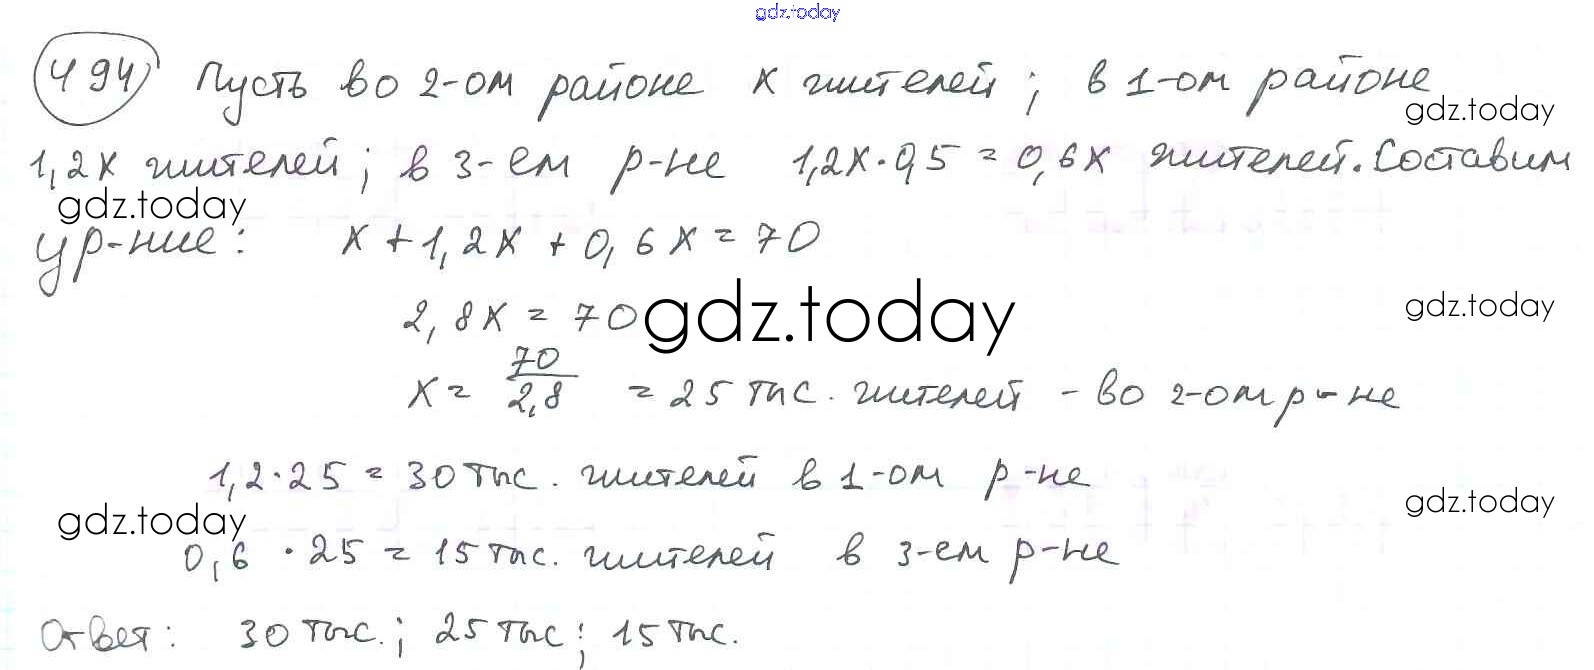 gdz.today
494 Пусть во 2-ом районе x жителей; в 1-ом районе
gdz.today
1,2x жителей; в 3-ем р-не 1,2x·0,5 = 0,6x жителей. Составим
gdz.today
ур-ние: x + 1,2x + 0,6x = 70
2,8x = 70
gdz.today
gdz.today
x = 70/2,8 = 25 тыс. жителей - во 2-ом р-не
1,2·25 = 30 тыс. жителей в 1-ом р-не
gdz.today
gdz.today
0,6 · 25 = 15 тыс. жителей в 3-ем р-не
Ответ: 30 тыс.; 25 тыс; 15 тыс.